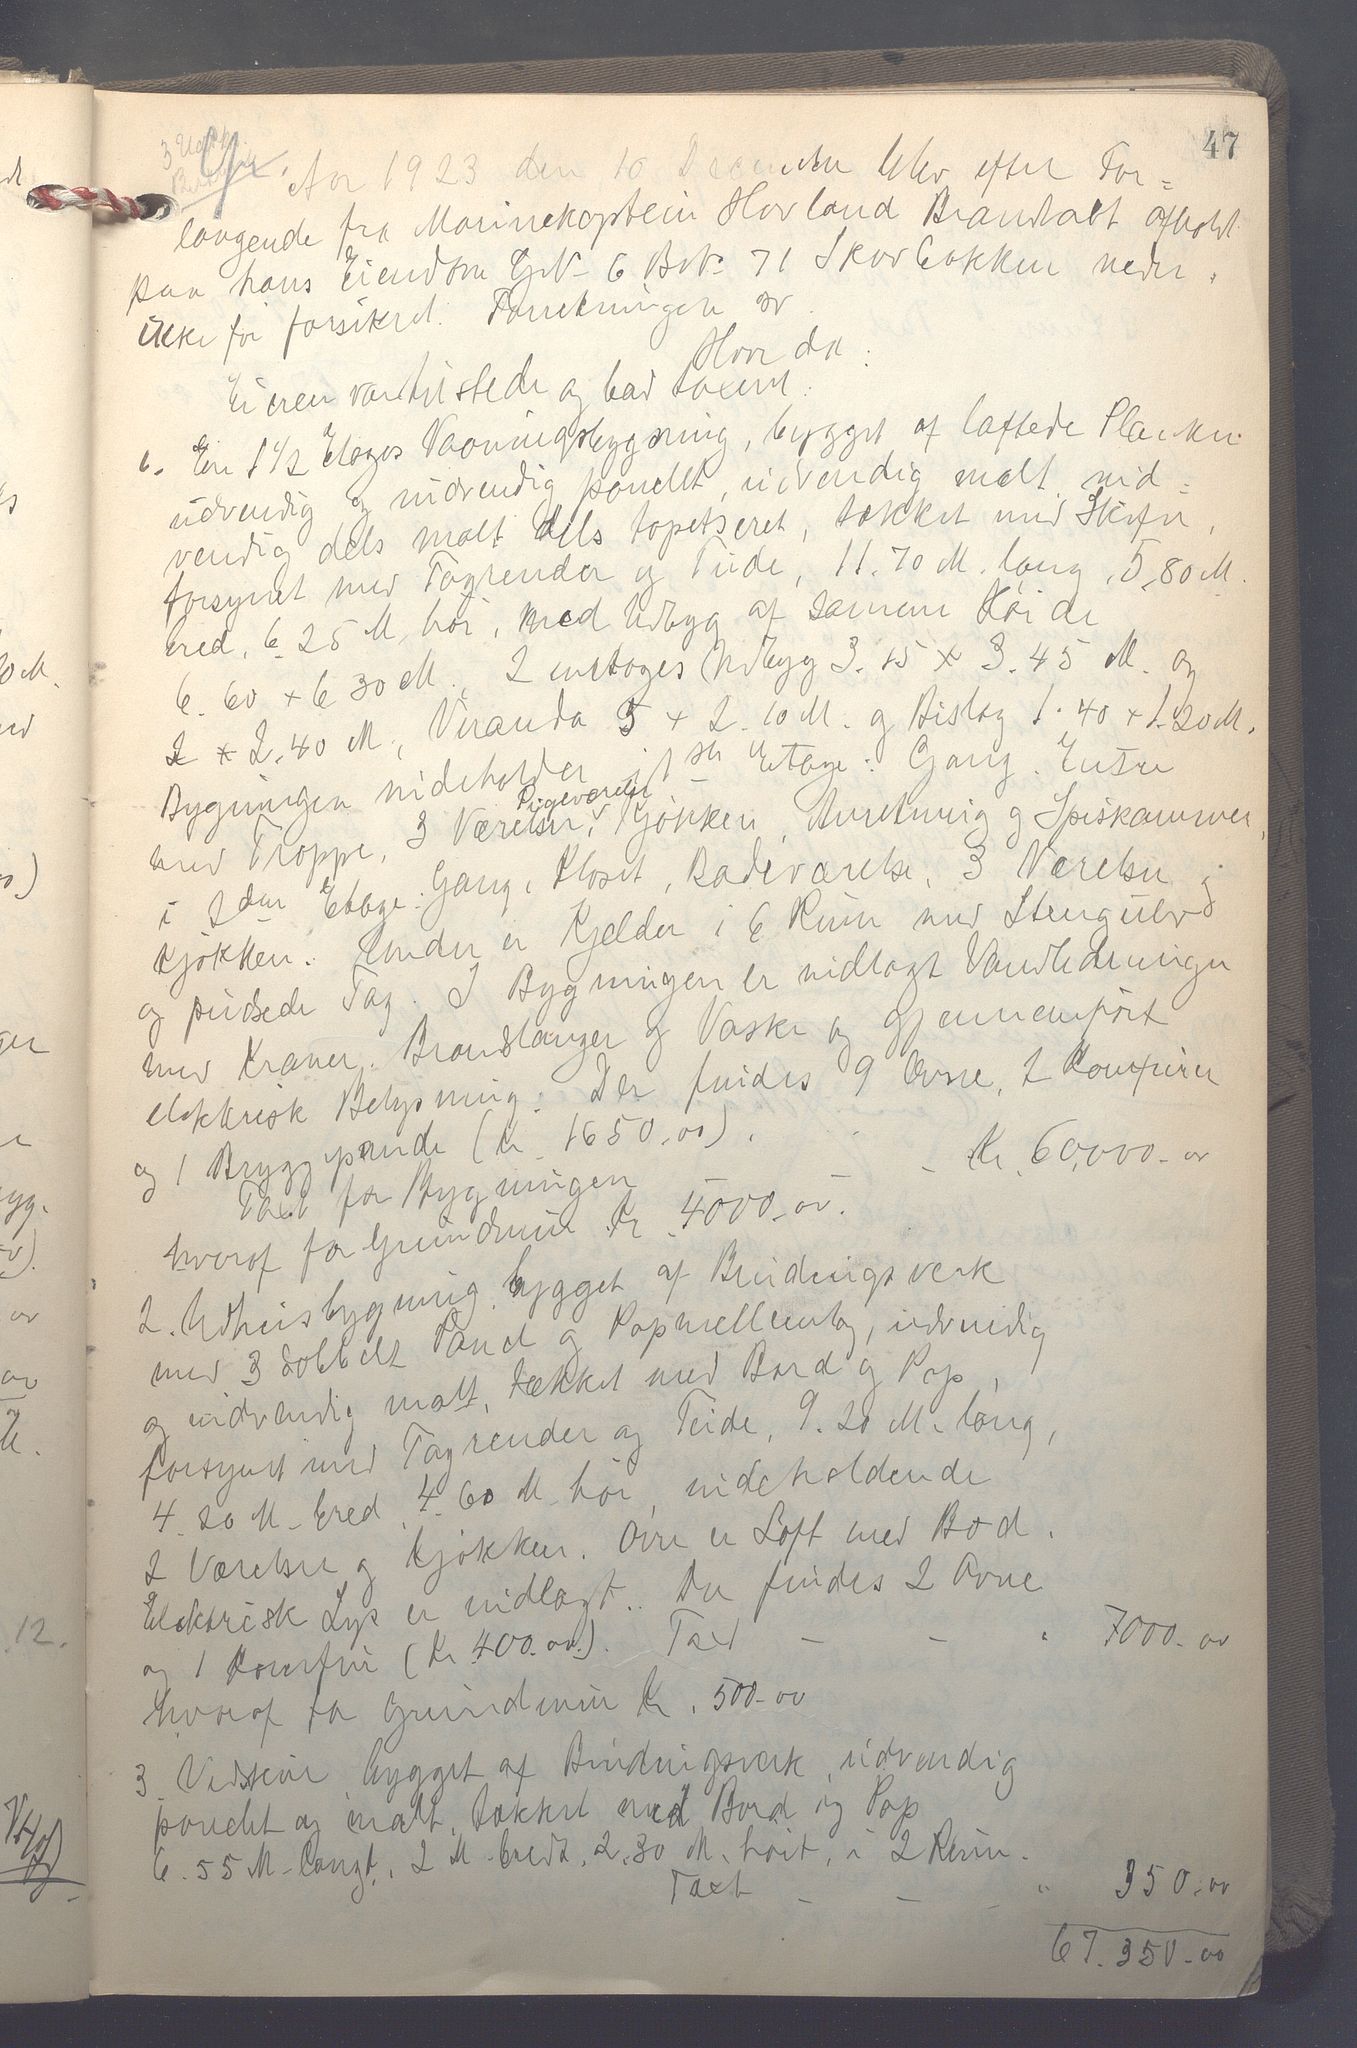 47
3 Udskr.
Aar 1923 den 10 December blev efter For=
langende fra Marinekaptein Hovland Brandtaxt afholdt
paa hans Eiendom G.N- 6 B.N- 71 Skovbakken neder.
ikke før forsikret. Forretningen er
Hovda.
Eieren var tilstede og bad taxert:
1. En 1 1/2 Etages Vaaningsbygning, bygget af laftede Planker
udvendig og indvendig panelt, udvendig malt ind=
vendig dels malt dels tapetseret, tækket med Skifer,
forsynet med Tagrender og Tude, 11.70 M. lang, 5,80 M.
bred, 6.25 M. høi, med Udbyg af samme Høide
6.60 x 6 30 M., 2 enetages Udbyg 3.15 x 3.45 M. og
2 x 2.40 M., Veranda 5 x 2.10 M. og Bislag 1.40 x 1.20 M.
Bygningen indeholder i 1ste Etage: Gang, Entre
Pigeværelse
med Trappe, 3 Værelser, Kjøkken, Anretning og Spiskammer,
i 2den Etage: Gang, Kloset, Badeværelse, 3 Værelser og
Kjøkken. Under er Kjelder i 6 Rum med Stengulv
og pudsede Tag. I Bygningen er indlagt Vandledninger
med Kraner, Brandslanger og Vaske og gjennemført
elektrisk Belysning. Der findes 9 Ovne, 2 Komfurer
og 1 Bryggepande (Kr. 1650.00).
Taxt for Bygningen - - Kr. 60,000-00
hvoraf for Grundmur Kr. 4000.00.
2. Udhusbygning, bygget af Bindingsverk
med 3 dobbelt Panel og Papmellemlag, udvendig
og indvendig malt, tækket med Bord og Pap,
forsynet med Tagrender og Tude, 9.20 M. lang,
4.20 M. bred, 4.60 M. høi, indeholdende
2 Værelser og Kjøkken. Over er Loft med Bod.
Elektrisk Lys er indlagt. Der findes 2 Ovne
og 1 Komfur (Kr. 400.00.). Taxt - - " 7000.00
hvoraf for Grundmur Kr. 500-00
3. Vedskur bygget af Bindingsverk, udvendig
panelt og malt, tækket med Bord og Pap
6.55 M. langt, 2 M. bredt, 2.30 M. høit, i 2 Rum.
Taxt - - - " 350.00
67.350-00
12.